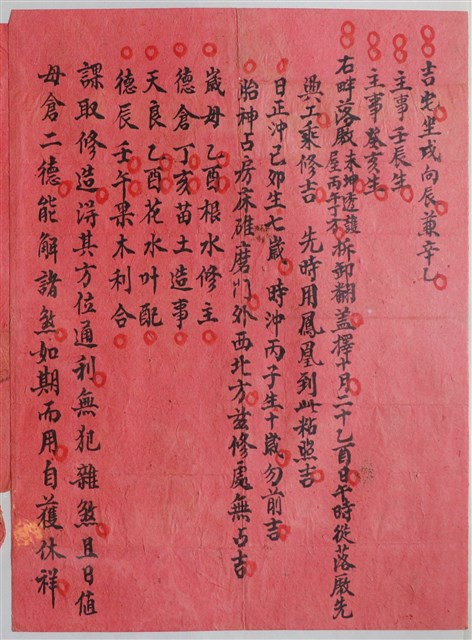 吉宅坐戌向辰兼辛乙
主事壬辰生
主事癸亥生
右畔落厰未坤透護屋丙午子不拆卸翻盖擇十月二十乙酉日午時從落厰先
興工乘修吉 先時用鳳凰到此粘照吉
日正沖己卯生七歲 時沖丙子生十歲勿前吉
胎神占房床碓磨门外西北方兹修處無占吉
歲母乙酉根水修主
德倉丁亥苗土造事
天良乙酉花水叶配
德辰壬午果木利合
課取修造得其方位通利無犯雜煞且日值
母倉二德能解諸煞如期而用自獲休祥